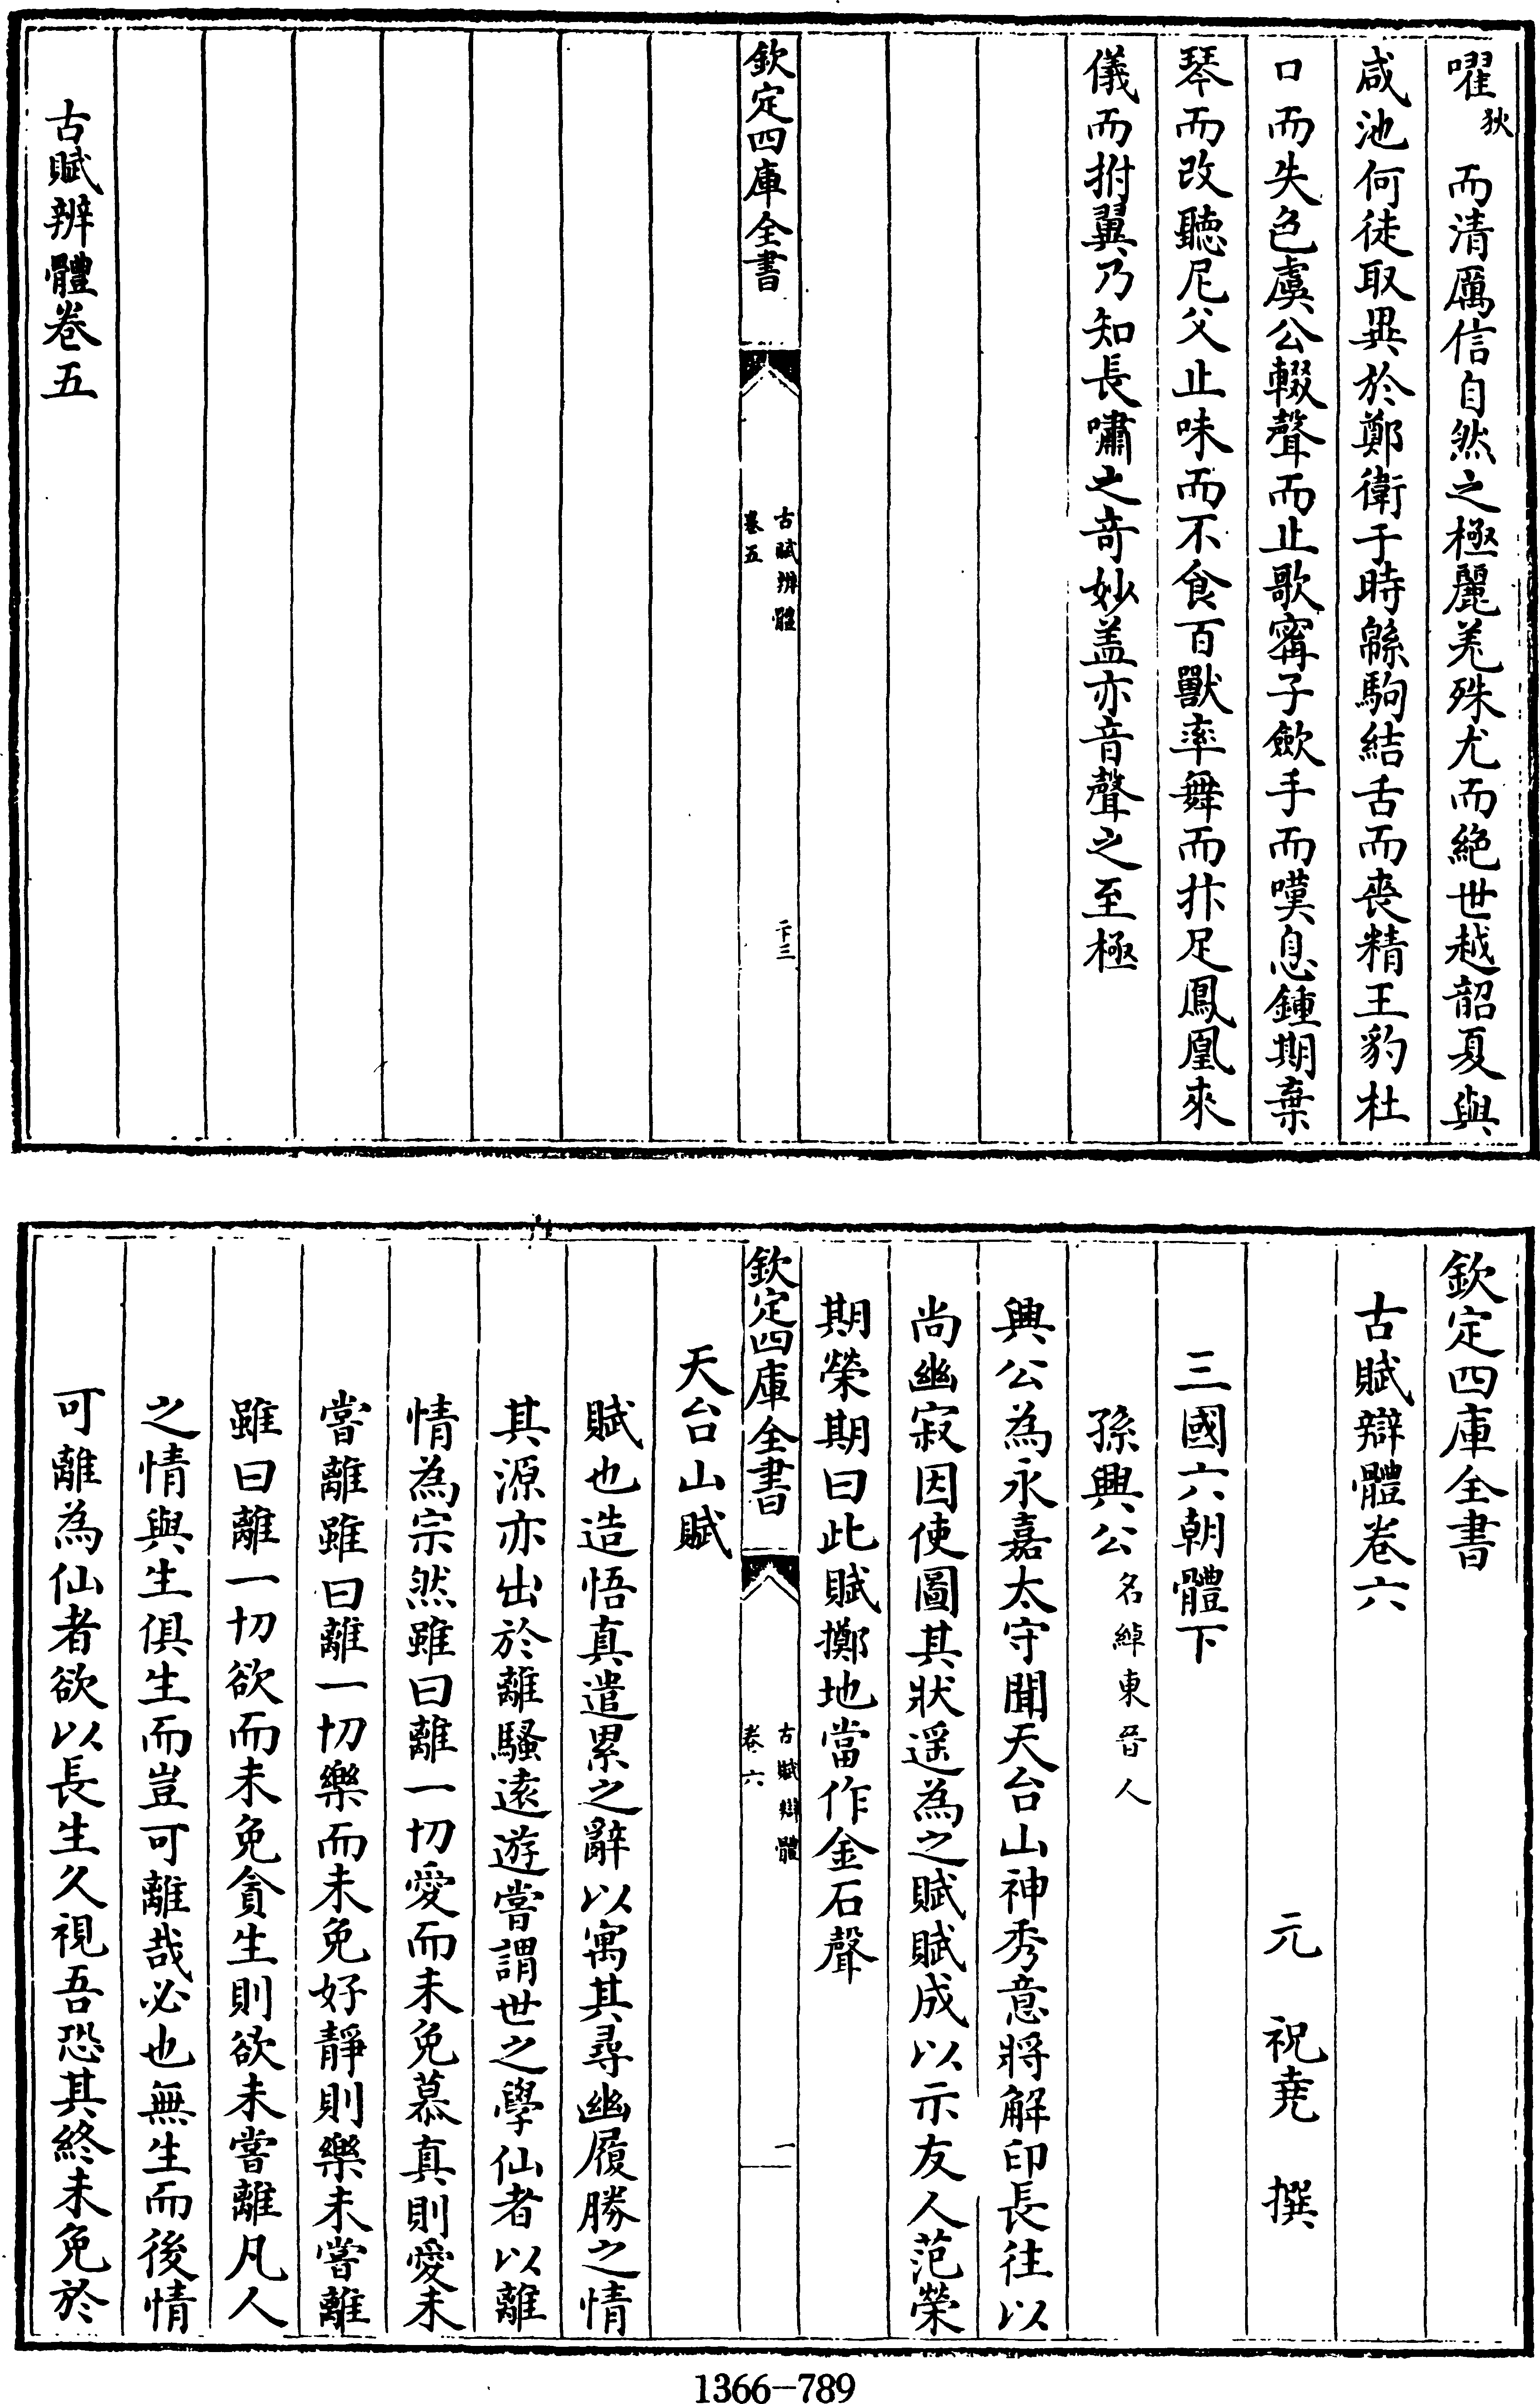 嚁狄而清厲信自然之極麗羌殊尤而絶世越韶夏與
咸池何徒取異於鄭衛于時緜駒結舌而喪精王豹杜
口而失色虞公輟聲而止歌甯子歛手而嘆息鍾期棄
琴而改聽尼父止味而不食百獸率舞而抃足鳳凰來
儀而拊翼乃知長嘯之奇妙盖亦音聲之至極
欽定四庫全書
古賦辨體
卷五
二十三
古賦辨體卷五
欽定四庫全書
古賦辯體卷六
元 祝堯 撰
三國六朝體下
孫興公名綽東晉人
興公為永嘉太守聞天台山神秀意將解印長往以
尚幽寂因使圖其狀遥為之賦賦成以示友人范榮
期榮期曰此賦擲地當作金石聲
欽定四庫全書
古賦辯體
卷六
一
天台山賦
賦也造悟真遣累之辭以寓其尋幽履勝之情
其源亦出於離騷遠遊嘗謂世之學仙者以離
情為宗然雖曰離一切愛而未免慕真則愛未
嘗離雖曰離一切樂而未免好靜則樂未嘗離
雖曰離一切欲而未免貪生則欲未嘗離凡人
之情與生俱生而豈可離哉必也無生而後情
可離為仙者欲以長生久視吾恐其終未免於
1366-789